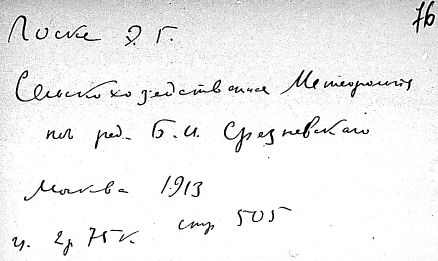 76
Лоске Э. Г.
Сельскохозяйственная Метеорология
под ред. Б. И. Срезневского
Москва 1913
ц. 2р 75к. стр 505